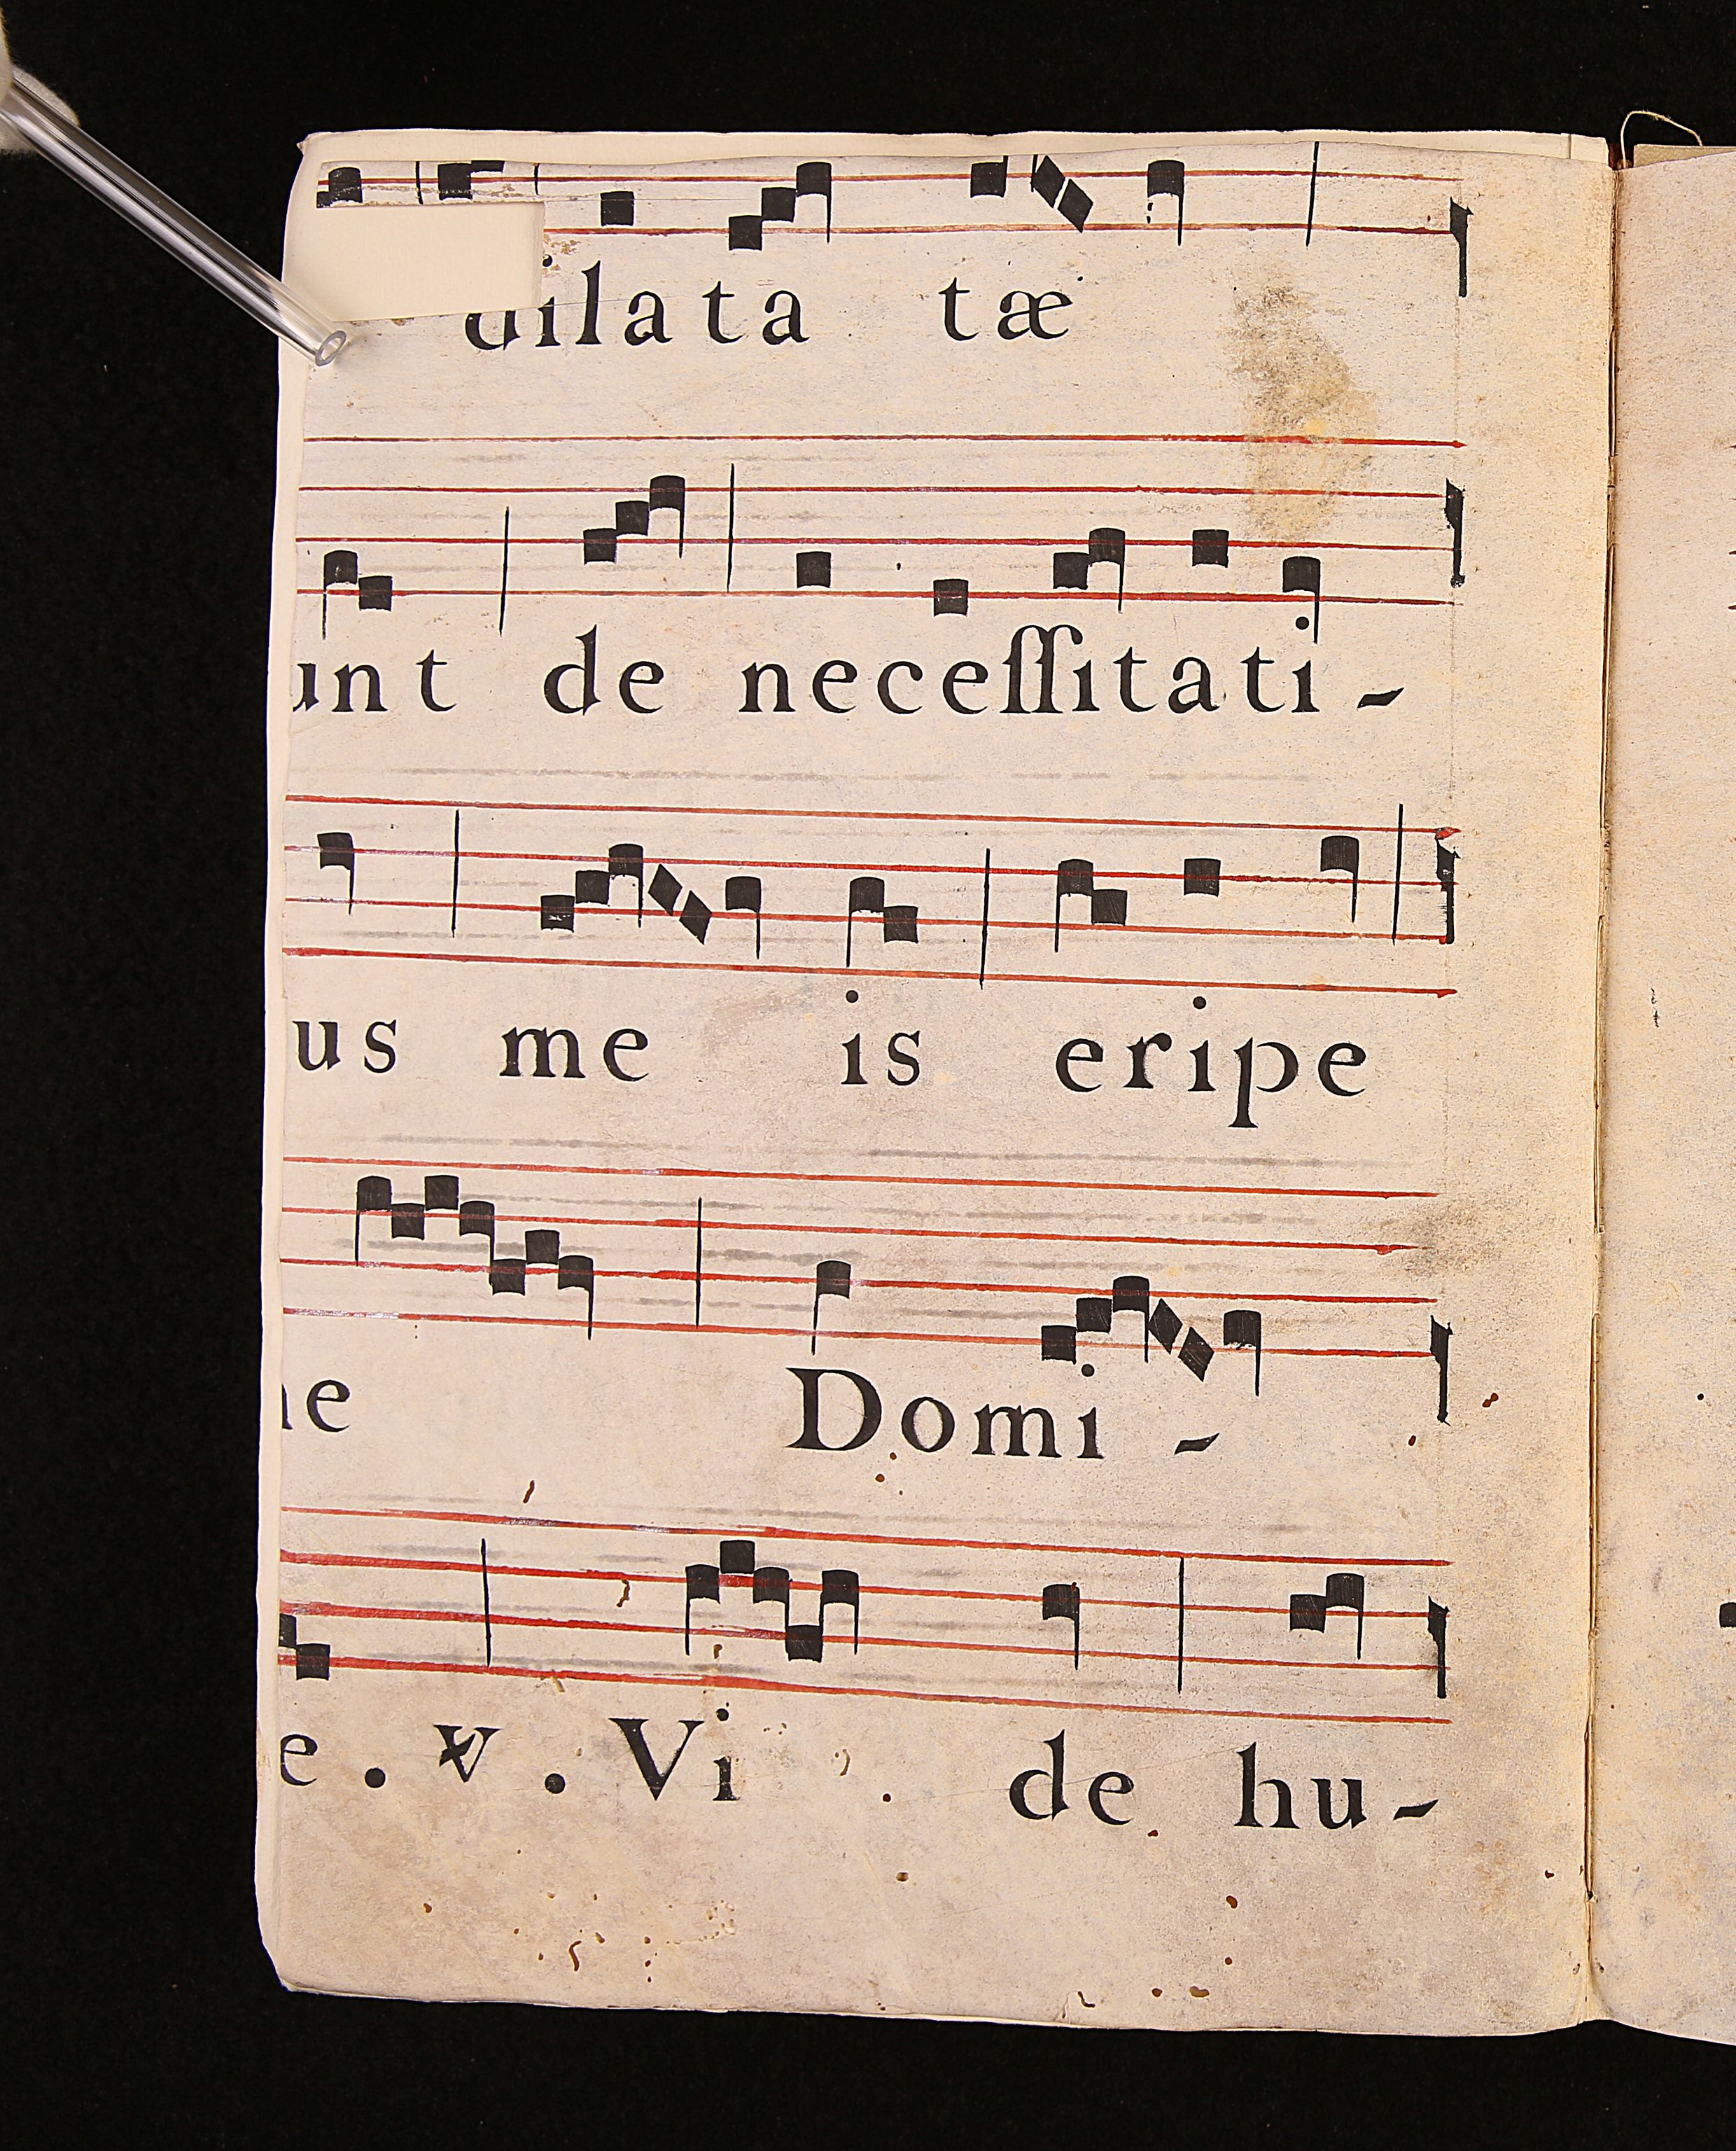 dilata tæ
unt de neceſſitati-
us me is eripe
e Domi-
e . v . Vi de hu-